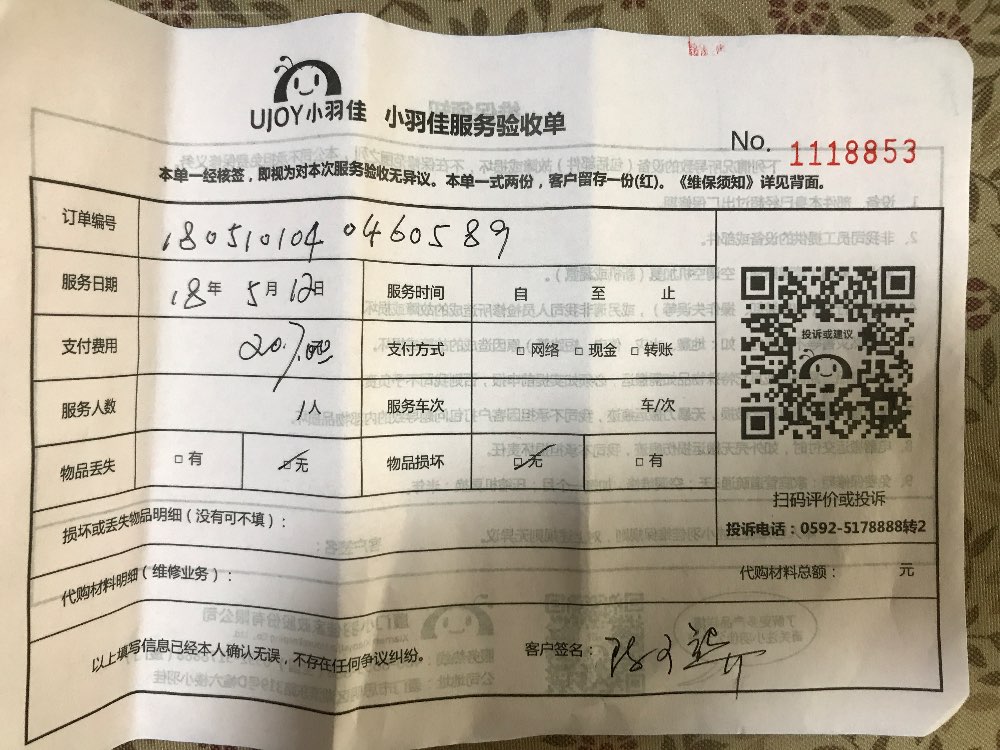 UJOY小羽佳 小羽佳服务验收单
No. 1118853
本单一经核签，即视为对本次服务验收无异议。本单一式两份，客户留存一份(红)。《维保须知》详见背面。
订单编号 180510104 0460589
服务日期 18年 5月 12日 服务时间 自 至 止
支付费用 支付方式 □ 网络 □ 现金 □ 转账
服务人数 1人 服务车次 车/次
物品丢失 □ 有 □ 无 物品损坏 □ 无 □ 有
投诉或建议
扫码评价或投诉
投诉电话：0592-5178888转2
损坏或丢失物品明细（没有可不填）：
代购材料明细（维修业务）： 代购材料总额： 元
以上填写信息已经本人确认无误，不存在任何争议纠纷。 客户签名：